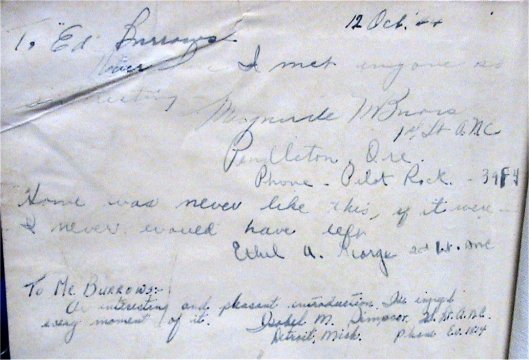 12 Oct. 44
To "Ed" Burrows
Never I met anyone so
Marguerite
1st Lt. A.N.C.
Pendleton, Ore.
Phone - Pilot Rock - 39F4
Home was never like this, if it were -
I never would have left
Ethel A. George 2nd Lt. ANC
To Mr. Burrows:-
An interesting and pleasant introduction. I've enjoyed
every moment of it. Isobel M. Simpson, 2d Lt. A.N.C.
Detroit, Mich. Phone Eu.